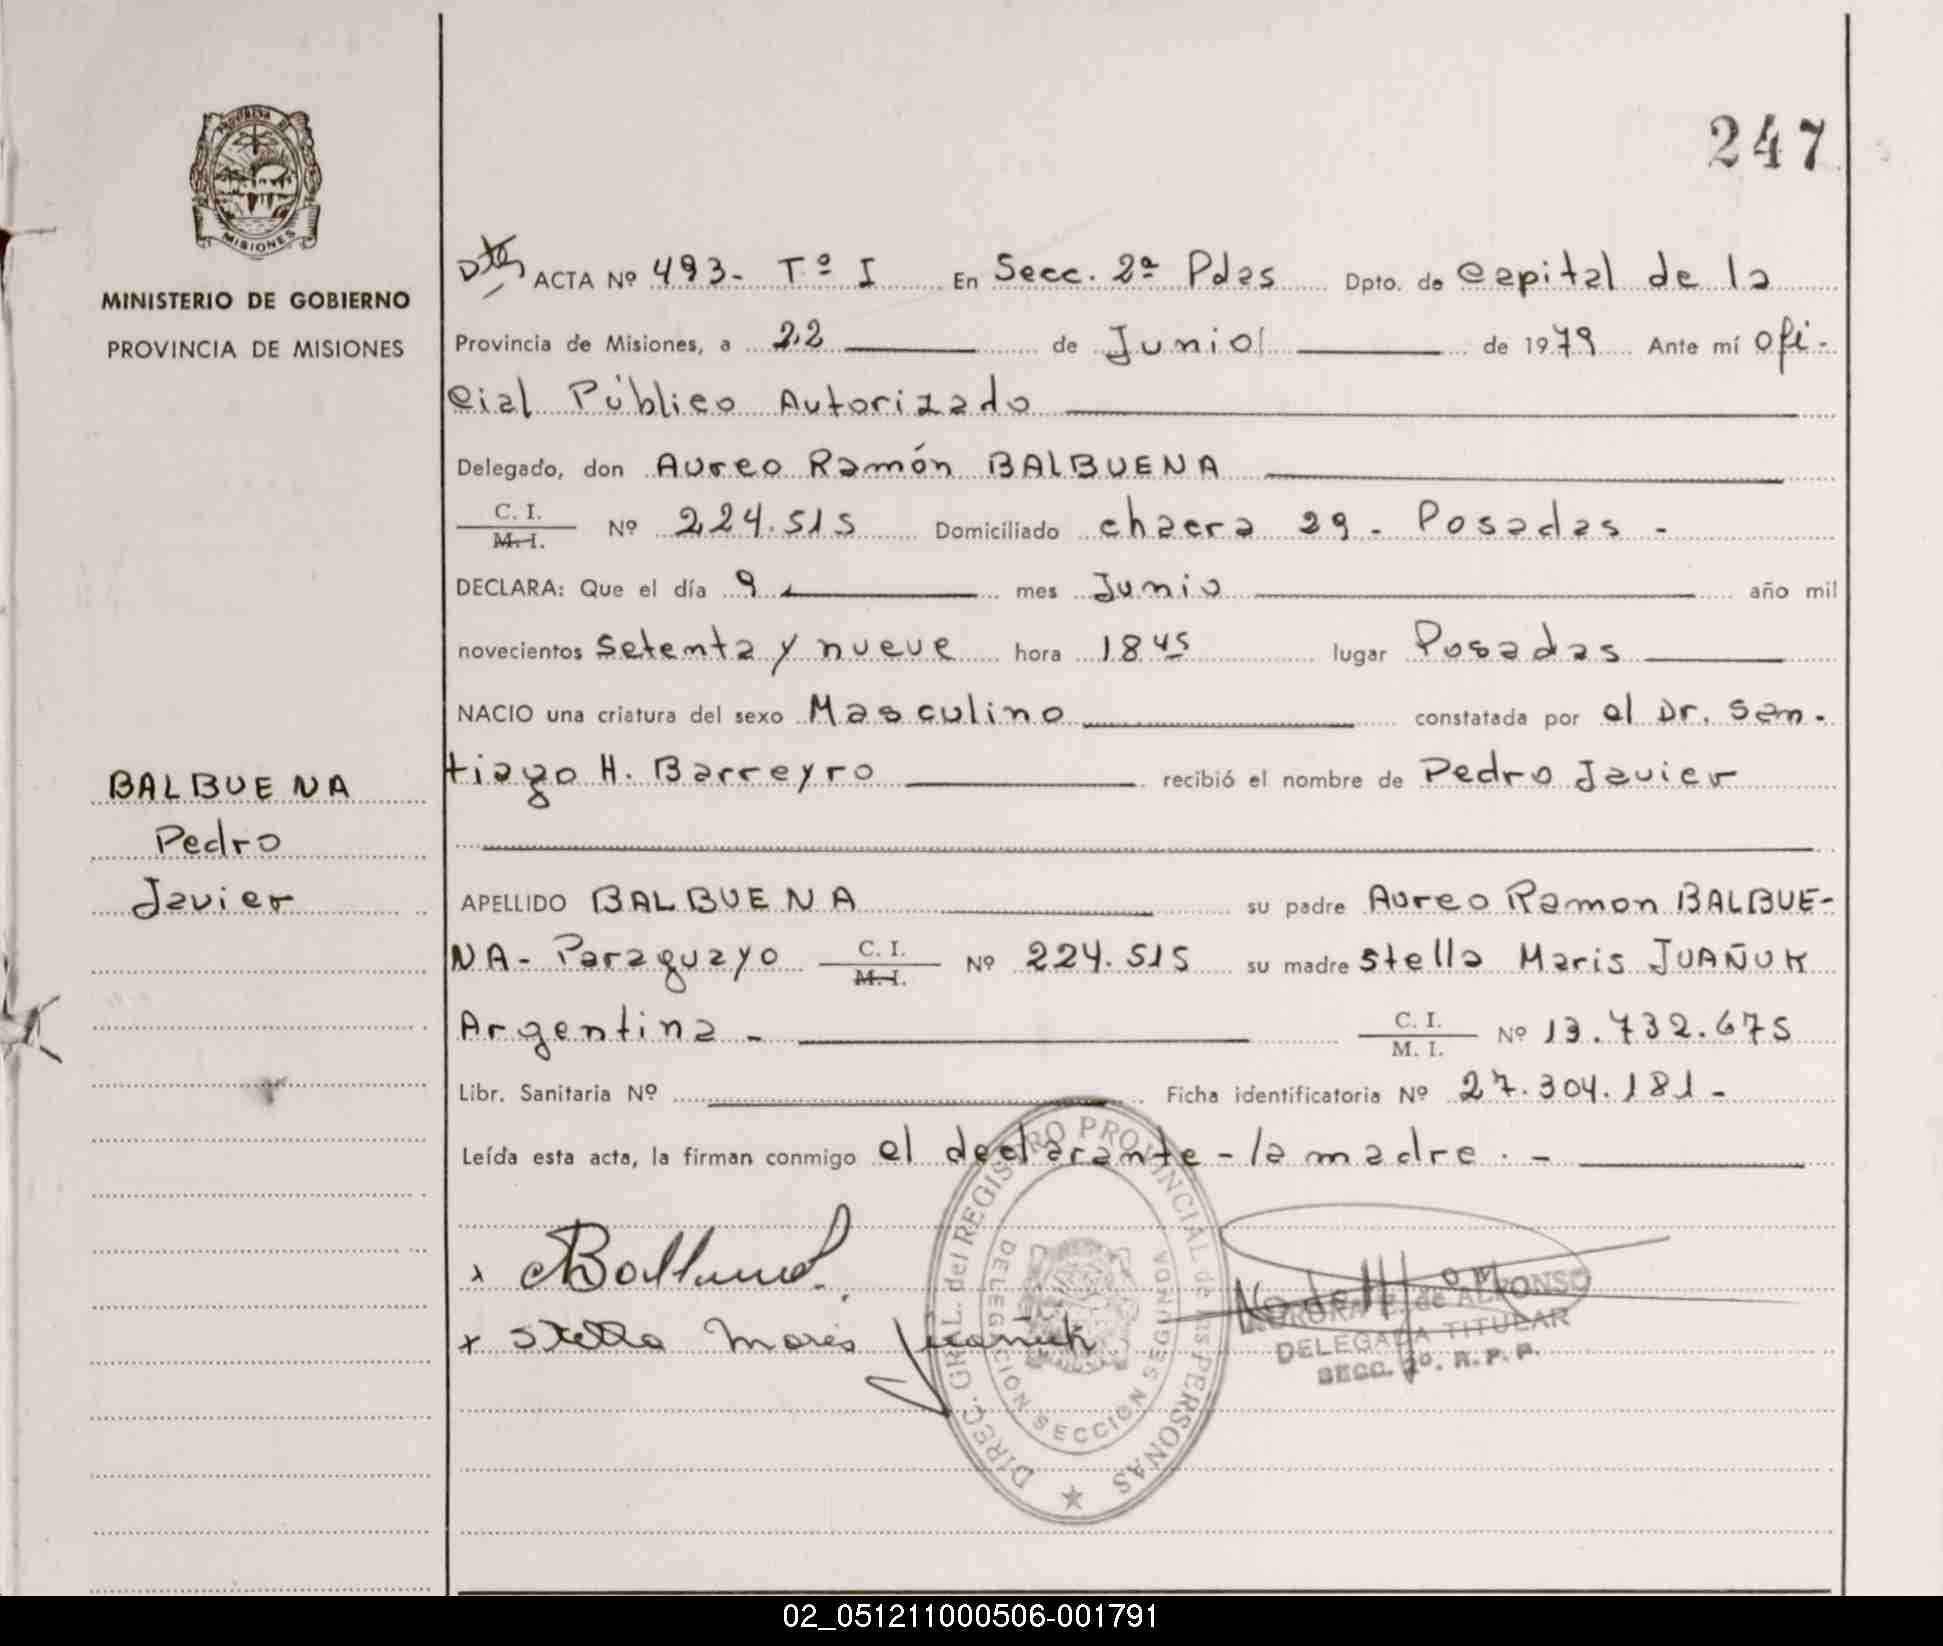 247
PROVINCIA DE
MISIONES
MINISTERIO DE GOBIERNO
PROVINCIA DE MISIONES
ACTA Nº 493- Tº I En Secc. 2ª Pdas Dpto. de Capital de la
Provincia de Misiones, a 22 de Junio de 1979 Ante mí Ofi-
cial Público Autorizado
Delegado, don Aureo Ramón BALBUENA
C. I.
M. I. Nº 224.515 Domiciliado chacra 29 - Posadas -
DECLARA: Que el día 9 mes Junio año mil
novecientos setenta y nueve hora 18 45 lugar Posadas
NACIO una criatura del sexo Masculino constatada por el Dr. San-
tiago H. Barreyro recibió el nombre de Pedro Javier
BALBUENA
Pedro
Javier
APELLIDO BALBUENA su padre Aureo Ramon BALBUE-
NA - Paraguayo C. I.
M. I. Nº 224.515 su madre Stella Maris JUAÑUK
Argentina - C. I.
M. I. Nº 13.732.675
Libr. Sanitaria Nº Ficha identificatoria Nº 27.304.181 -
Leída esta acta, la firman conmigo el declarante - la madre. -
x
x Stella Maris Juañuk
DIREC. GRAL. del REGISTRO PROVINCIAL de las PERSONAS
DELEGACION SECCION SEGUNDA
de ALFONSO
DELEGADA TITULAR
SECC. 2º. R. P. P.
02_051211000506-001791